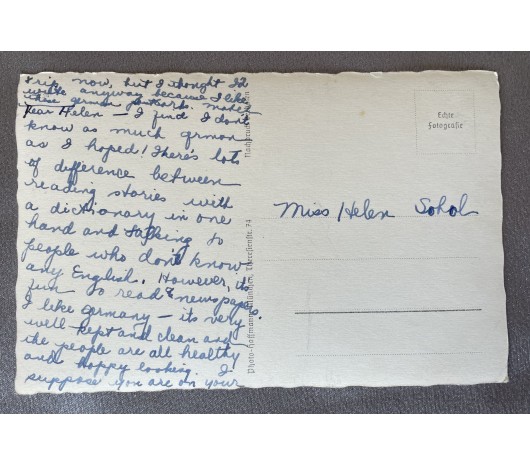 trip now, but I thought I'd
write anyway because I like
these german postcards.
Dear Helen — I find I don't
know as much grman
as I hoped! There's lots
of difference between
reading stories with
a dictionary in one
hand and talking to
people who don't know
any English. However, its
fun to read newspapers.
I like germany — its very
well kept and clean and
the people are all healthy
and happy looking. I
suppose you are on your
Nachdruck
Photo-Hoffmann, München, Theresienstr. 74
Echte
Fotografie
Miss Helen Sohol